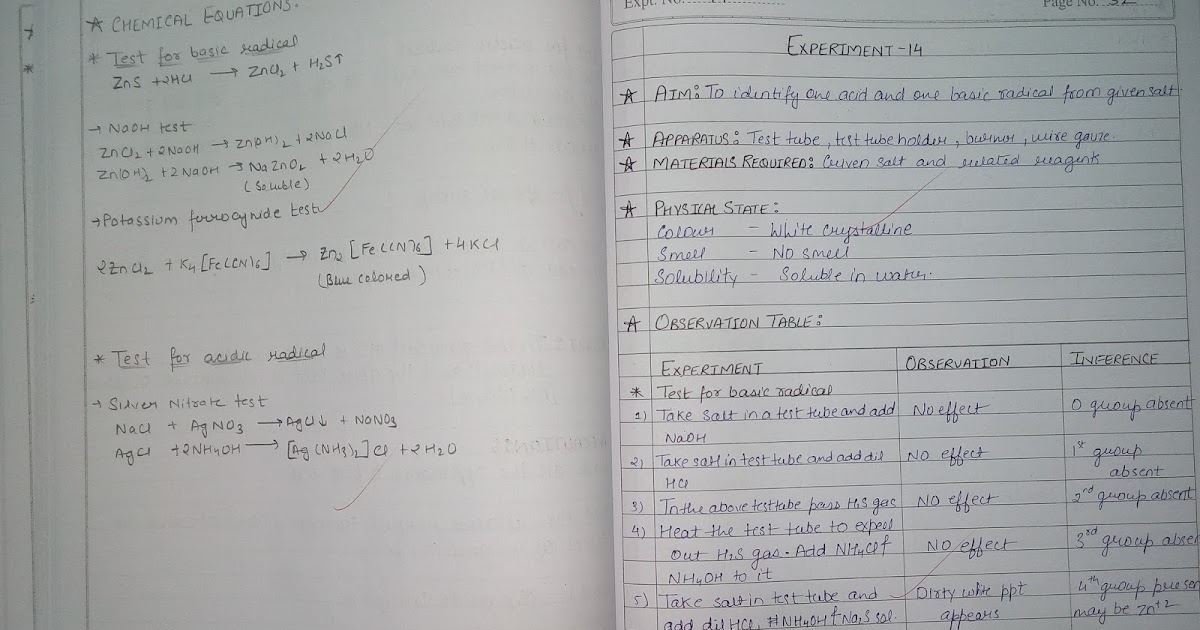 ★ CHEMICAL EQUATIONS.
* Test for basic radical
ZnS + 2HCl → ZnCl2 + H2S↑
→ NaOH test
ZnCl2 + 2NaOH → Zn(OH)2 + 2NaCl
Zn(OH)2 + 2NaOH → NaZnO2 + 2H2O
(Soluble)
→ Potassium ferrocynide test
2ZnCl2 + K4[Fe(CN)6] → Zn2[Fe(CN)6] + 4KCl
(Blue colored)
* Test for acidic radical
→ Silver Nitrate test
NaCl + AgNO3 → AgCl↓ + NaNO3
AgCl + 2NH4OH → [Ag(NH3)2]Cl + 2H2O
Expt. No. Page No. 32
EXPERIMENT-14
★ AIM: To identify one acid and one basic radical from given salt.
★ APPARATUS: Test tube, test tube holder, burner, wire gauze.
★ MATERIALS REQUIRED: Given salt and related reagents
★ PHYSICAL STATE:
Colour - White crystalline
Smell - No smell
Solubility - Soluble in water.
★ OBSERVATION TABLE:
EXPERIMENT OBSERVATION INFERENCE
* Test for basic radical
1) Take salt in a test tube and add No effect 0 group absent
NaOH
2) Take salt in test tube and add dil No effect 1st group
HCl absent
3) In the above test tube pass H2S gas NO effect 2nd group absent
4) Heat the test tube to expell
out H2S gas. Add NH4Cl & No effect 3rd group absen
NH4OH to it
5) Take salt in test tube and Dirty white ppt 4th group presen
add dil HCl, NH4OH & Na2S sol. appears may be Zn+2